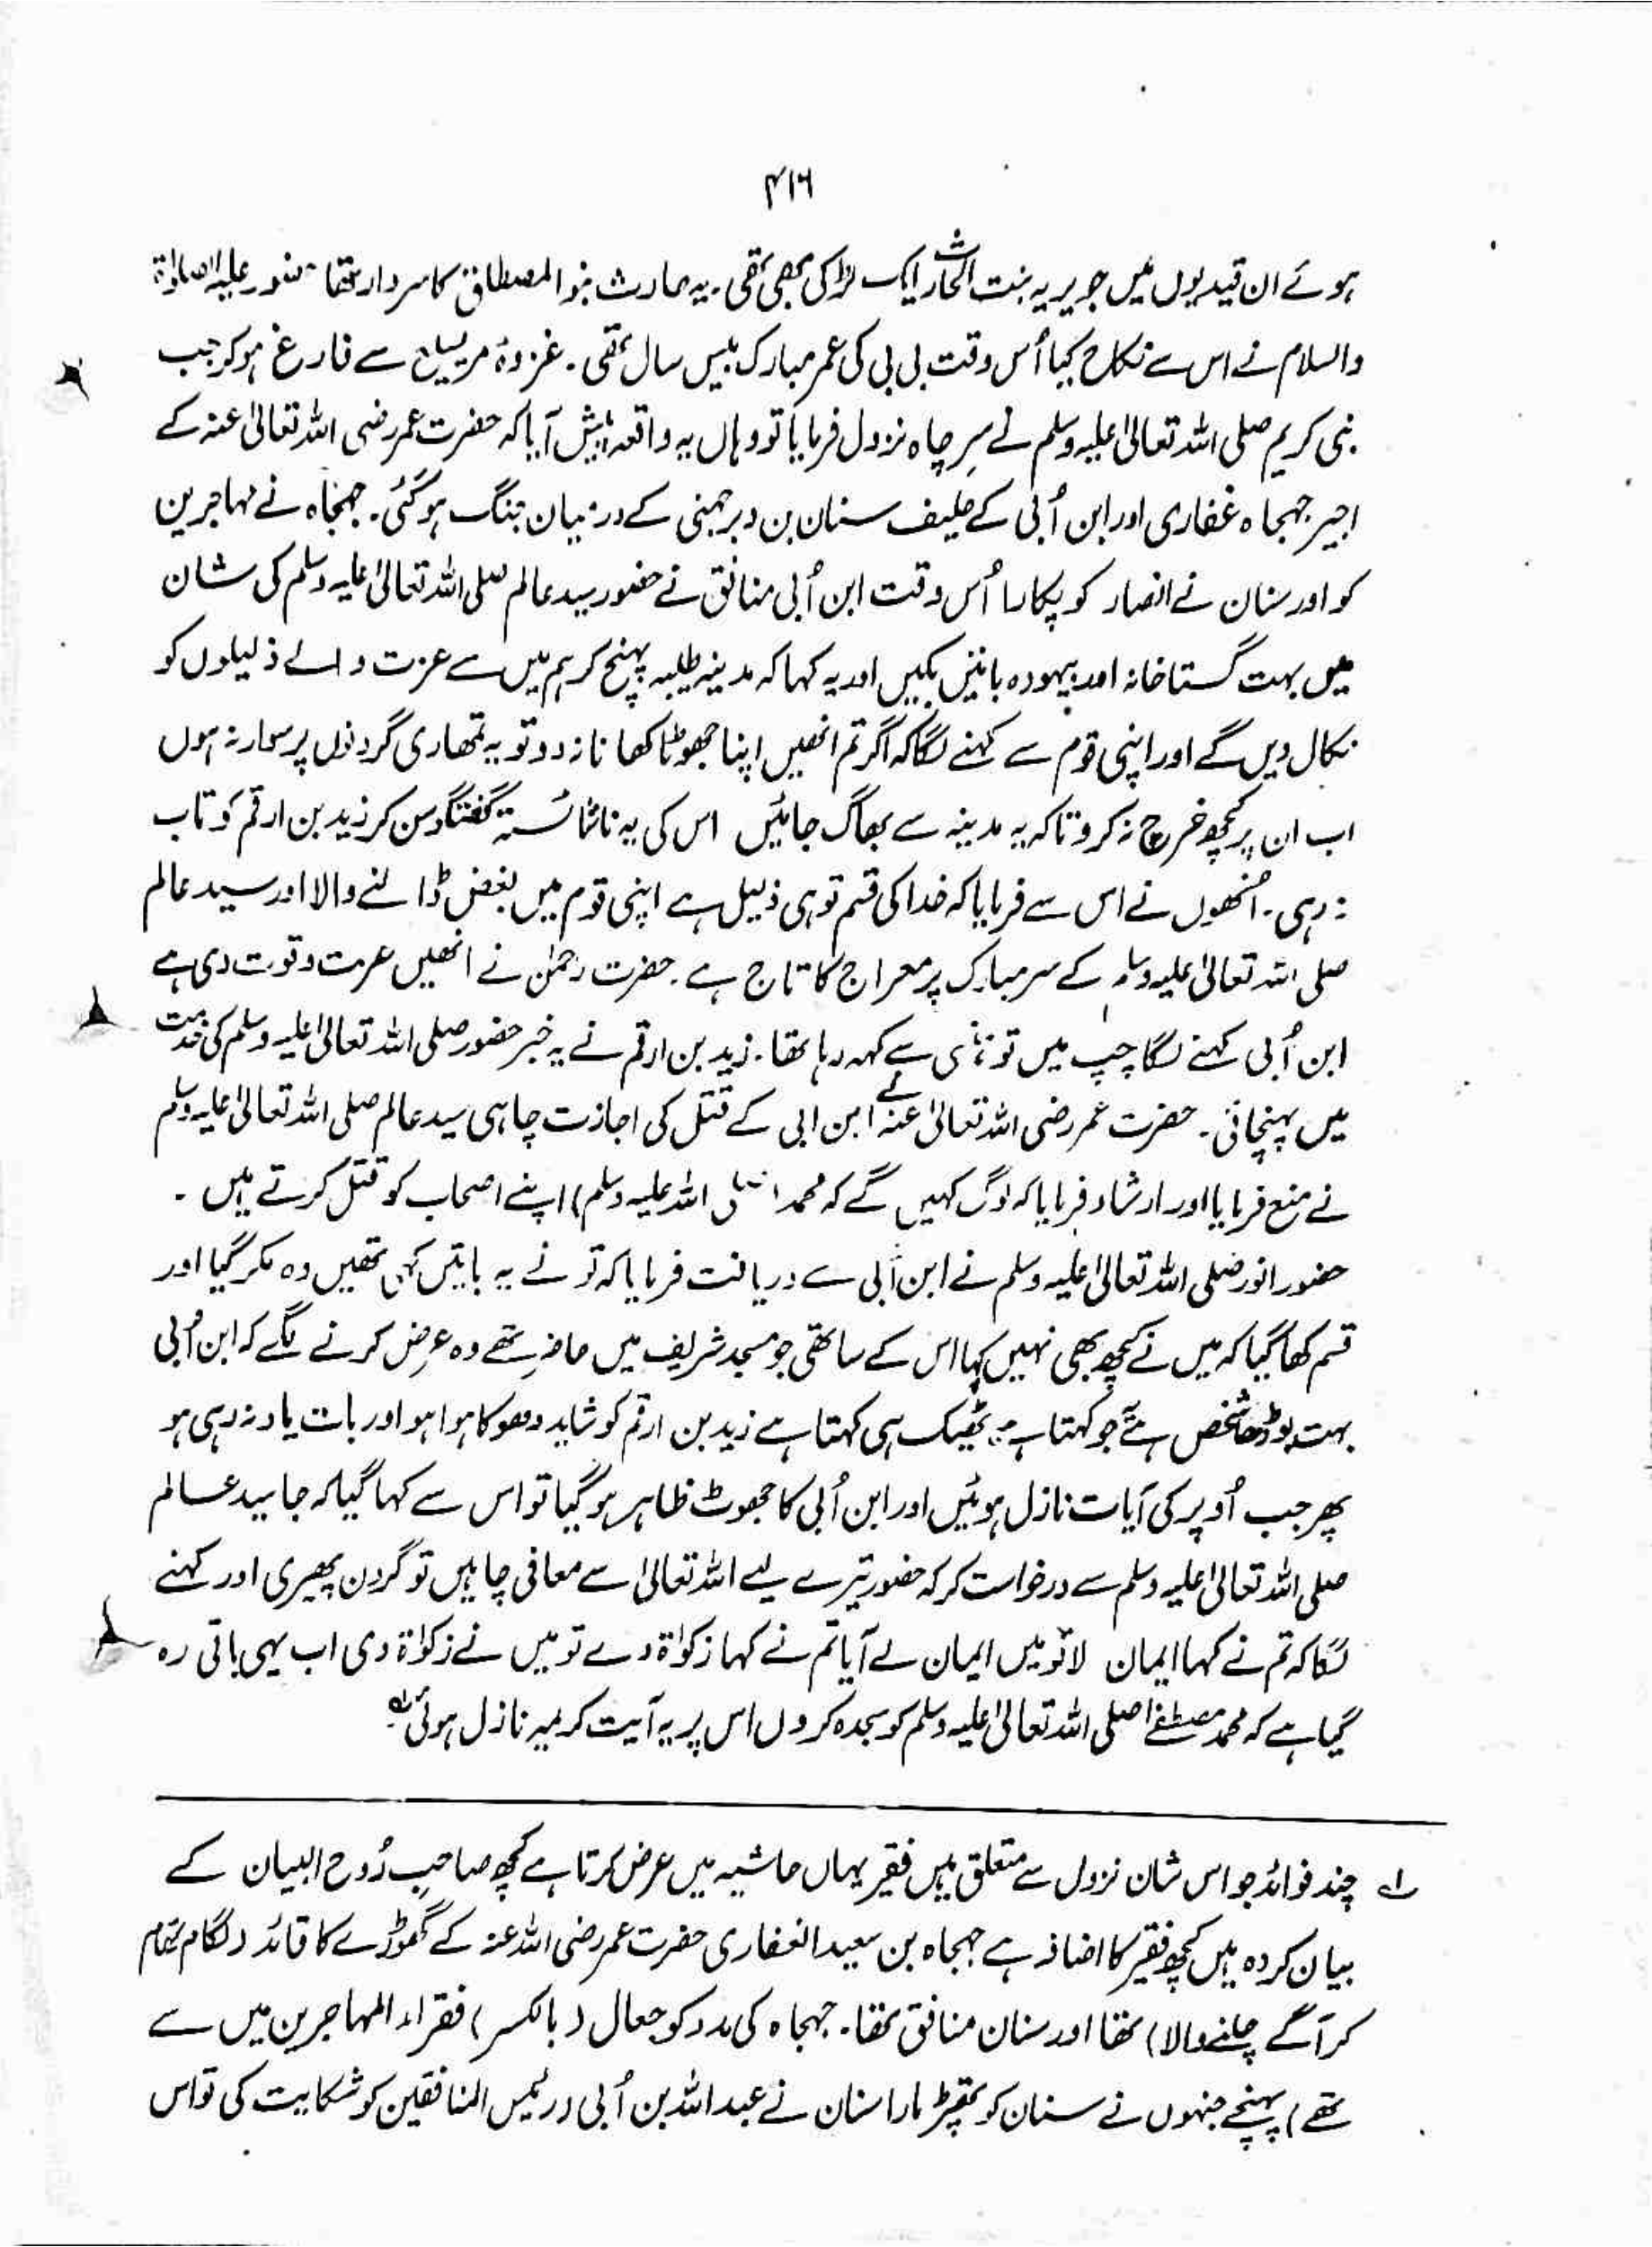 ۴۱۶
ہوئے ان قیدیوں میں جویریہ بنت الحارث ایک لڑکی بھی تھی۔ یہ حارث بنو المصطلق کا سردار تھا حضور علیہ الصلوٰۃ
والسلام نے اس سے نکاح کیا اُس وقت بی بی کی عمر مبارک بیس سال تھی۔ غزوۂ مریسیع سے فارغ ہو کر جب
نبی کریم صلی اللہ تعالیٰ علیہ وسلم نے سرِ چاہ نزول فرمایا تو وہاں یہ واقعہ پیش آیا کہ حضرت عمر رضی اللہ تعالیٰ عنہ کے
اجیر جہجاہ غفاری اور ابن اُبی کے حلیف سنان بن دبر جہنی کے درمیان جنگ ہوگئی۔ جہجاہ نے مہاجرین
کو اور سنان نے انصار کو پکارا اُس وقت ابن اُبی منافق نے حضور سید عالم صلی اللہ تعالیٰ علیہ وسلم کی شان
میں بہت گستاخانہ اور بیہودہ باتیں بکیں اور یہ کہا کہ مدینہ طیبہ پہنچ کر ہم میں سے عزت والے ذلیلوں کو
نکال دیں گے اور اپنی قوم سے کہنے لگا کہ اگر تم انھیں اپنا جھوٹا کھانا نہ دو تو یہ تمھاری گردنوں پر سوار نہ ہوں
اب ان پر کچھ خرچ نہ کرو تاکہ یہ مدینہ سے بھاگ جائیں اس کی یہ ناشائستہ گفتگو سن کر زید بن ارقم کو تاب
نہ رہی۔ اُنھوں نے اس سے فرمایا کہ خدا کی قسم تو ہی ذلیل ہے اپنی قوم میں بغض ڈالنے والا اور سید عالم
صلی اللہ تعالیٰ علیہ وسلم کے سر مبارک پر معراج کا تاج ہے۔ حضرت رحمٰن نے انھیں عزت و قوت دی ہے
ابن اُبی کہنے لگا چپ میں تو ہنسی سے کہہ رہا تھا۔ زید بن ارقم نے یہ خبر حضور صلی اللہ تعالیٰ علیہ وسلم کی خدمت
میں پہنچائی۔ حضرت عمر رضی اللہ تعالیٰ عنہ نے ابن ابی کے قتل کی اجازت چاہی سید عالم صلی اللہ تعالیٰ علیہ وسلم
نے منع فرمایا اور ارشاد فرمایا کہ لوگ کہیں گے کہ محمد (صلی اللہ علیہ وسلم) اپنے اصحاب کو قتل کرتے ہیں ۔
حضور انور صلی اللہ تعالیٰ علیہ وسلم نے ابن اُبی سے دریافت فرمایا کہ تو نے یہ باتیں کہی تھیں وہ مکر گیا اور
قسم کھا گیا کہ میں نے کچھ بھی نہیں کہا اس کے ساتھی جو مسجد شریف میں حاضر تھے وہ عرض کرنے لگے کہ ابن اُبی
بہت بوڑھا شخص ہے جو کہتا ہے ٹھیک ہی کہتا ہے زید بن ارقم کو شاید دھوکا ہوا ہو اور بات یاد نہ رہی ہو
پھر جب اُوپر کی آیات نازل ہوئیں اور ابن اُبی کا جھوٹ ظاہر ہو گیا تو اس سے کہا گیا کہ جا سید عالم
صلی اللہ تعالیٰ علیہ وسلم سے درخواست کر کہ حضور تیرے لیے اللہ تعالیٰ سے معافی چاہیں تو گردن پھیری اور کہنے
لگا کہ تم نے کہا ایمان لاؤ میں ایمان لے آیا تم نے کہا زکوٰۃ دے تو میں نے زکوٰۃ دی اب یہی باقی رہ
گیا ہے کہ محمد مصطفےٰ صلی اللہ تعالیٰ علیہ وسلم کو سجدہ کروں اس پر یہ آیت کریمہ نازل ہوئی۔ ؎۱
؎۱ چند فوائد جو اس شان نزول سے متعلق ہیں فقیر یہاں حاشیہ میں عرض کرتا ہے کچھ صاحبِ رُوح البیان کے
بیان کردہ ہیں کچھ فقیر کا اضافہ ہے جہجاہ بن سعید الغفاری حضرت عمر رضی اللہ عنہ کے گھوڑے کا قائد (لگام تھام
کر آگے چلنے والا) تھا اور سنان منافق تھا۔ جہجاہ کی مدد کو جعال (بالکسر) فقراء المہاجرین میں سے
تھے) پہنچے جنہوں نے سنان کو تھپڑ مارا سنان نے عبد اللہ بن اُبی رئیس المنافقین کو شکایت کی تو اس